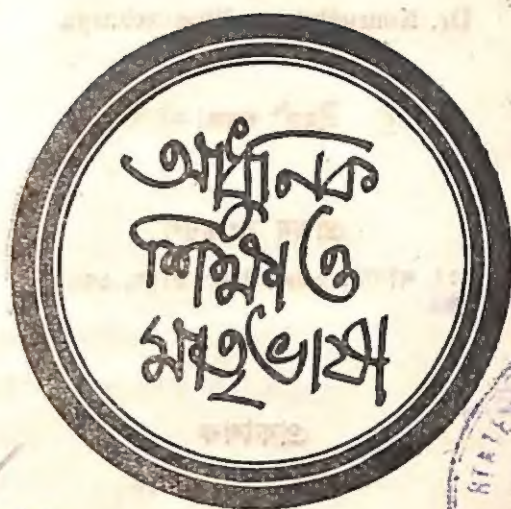 আধুনিক
শিক্ষা ও
মাতৃভাষা